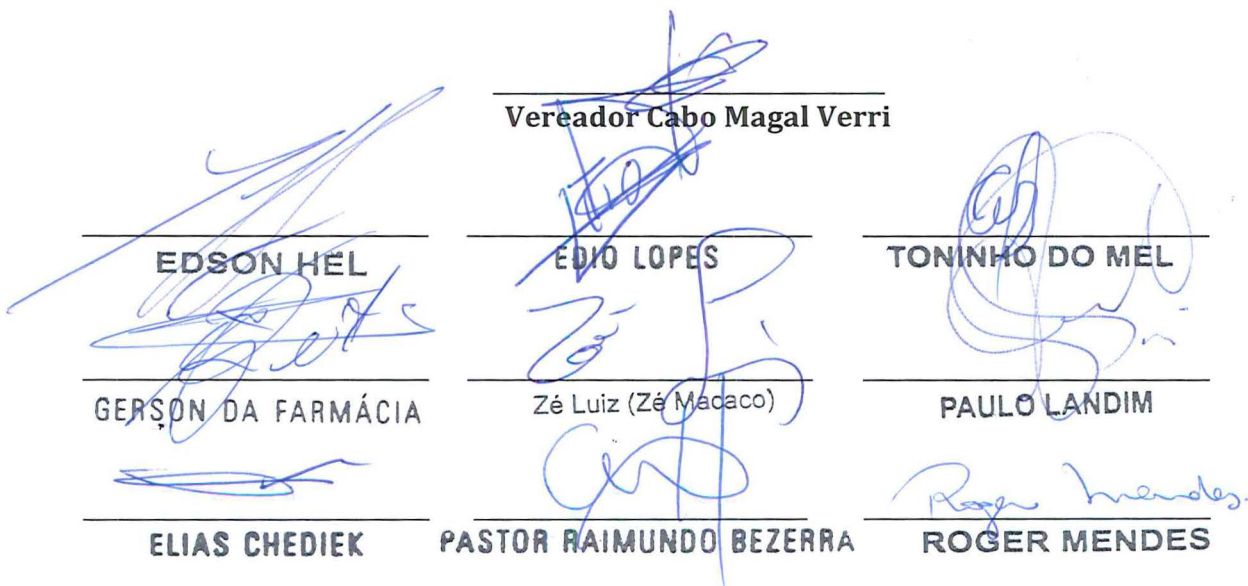 Vereador Cabo Magal Verri
EDSON HEL EDIO LOPES TONINHO DO MEL
GERSON DA FARMÁCIA Zé Luiz (Zé Macaco) PAULO LANDIM
Roger Mendes.
ELIAS CHEDIEK PASTOR RAIMUNDO BEZERRA ROGER MENDES